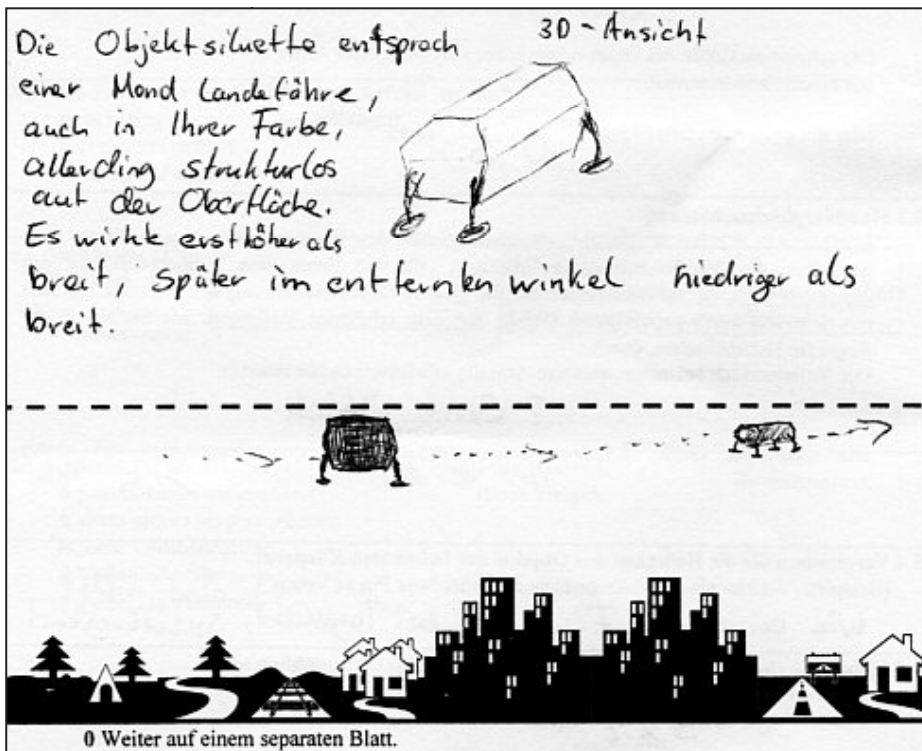 3D-Ansicht
Die Objektsiluette entsprach
einer Mond Landeföhre,
auch in Ihrer Farbe,
allerding strukturlos
auf der Oberfläche.
Es wirkte erst höher als
breit, später im entfernten winkel niedriger als
breit.
0 Weiter auf einem separaten Blatt.